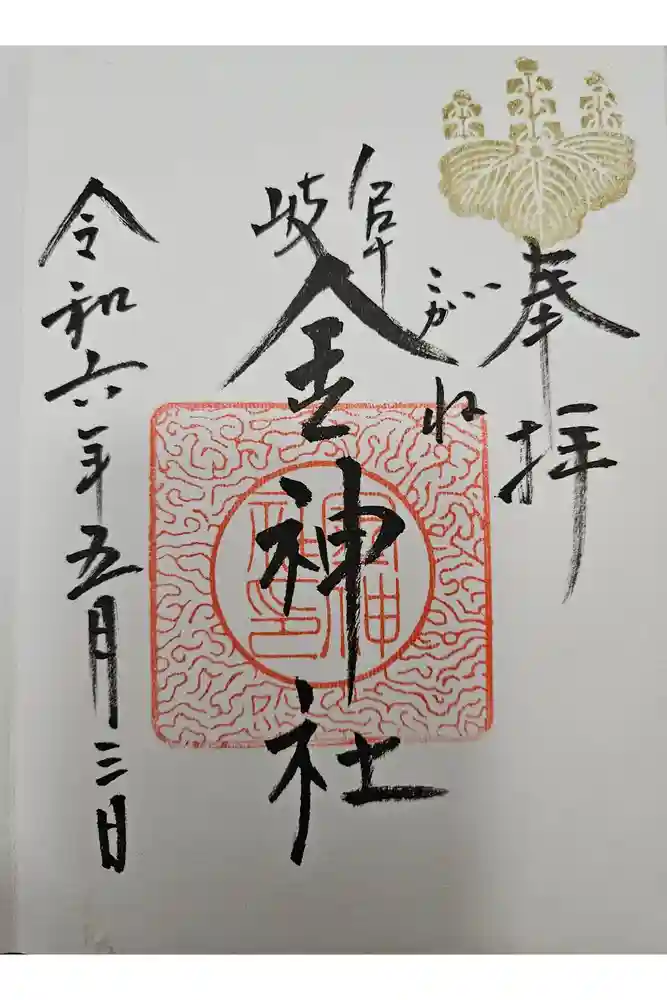 奉拝
岐阜
こがね
金神社
令和六年五月三日
金神社印